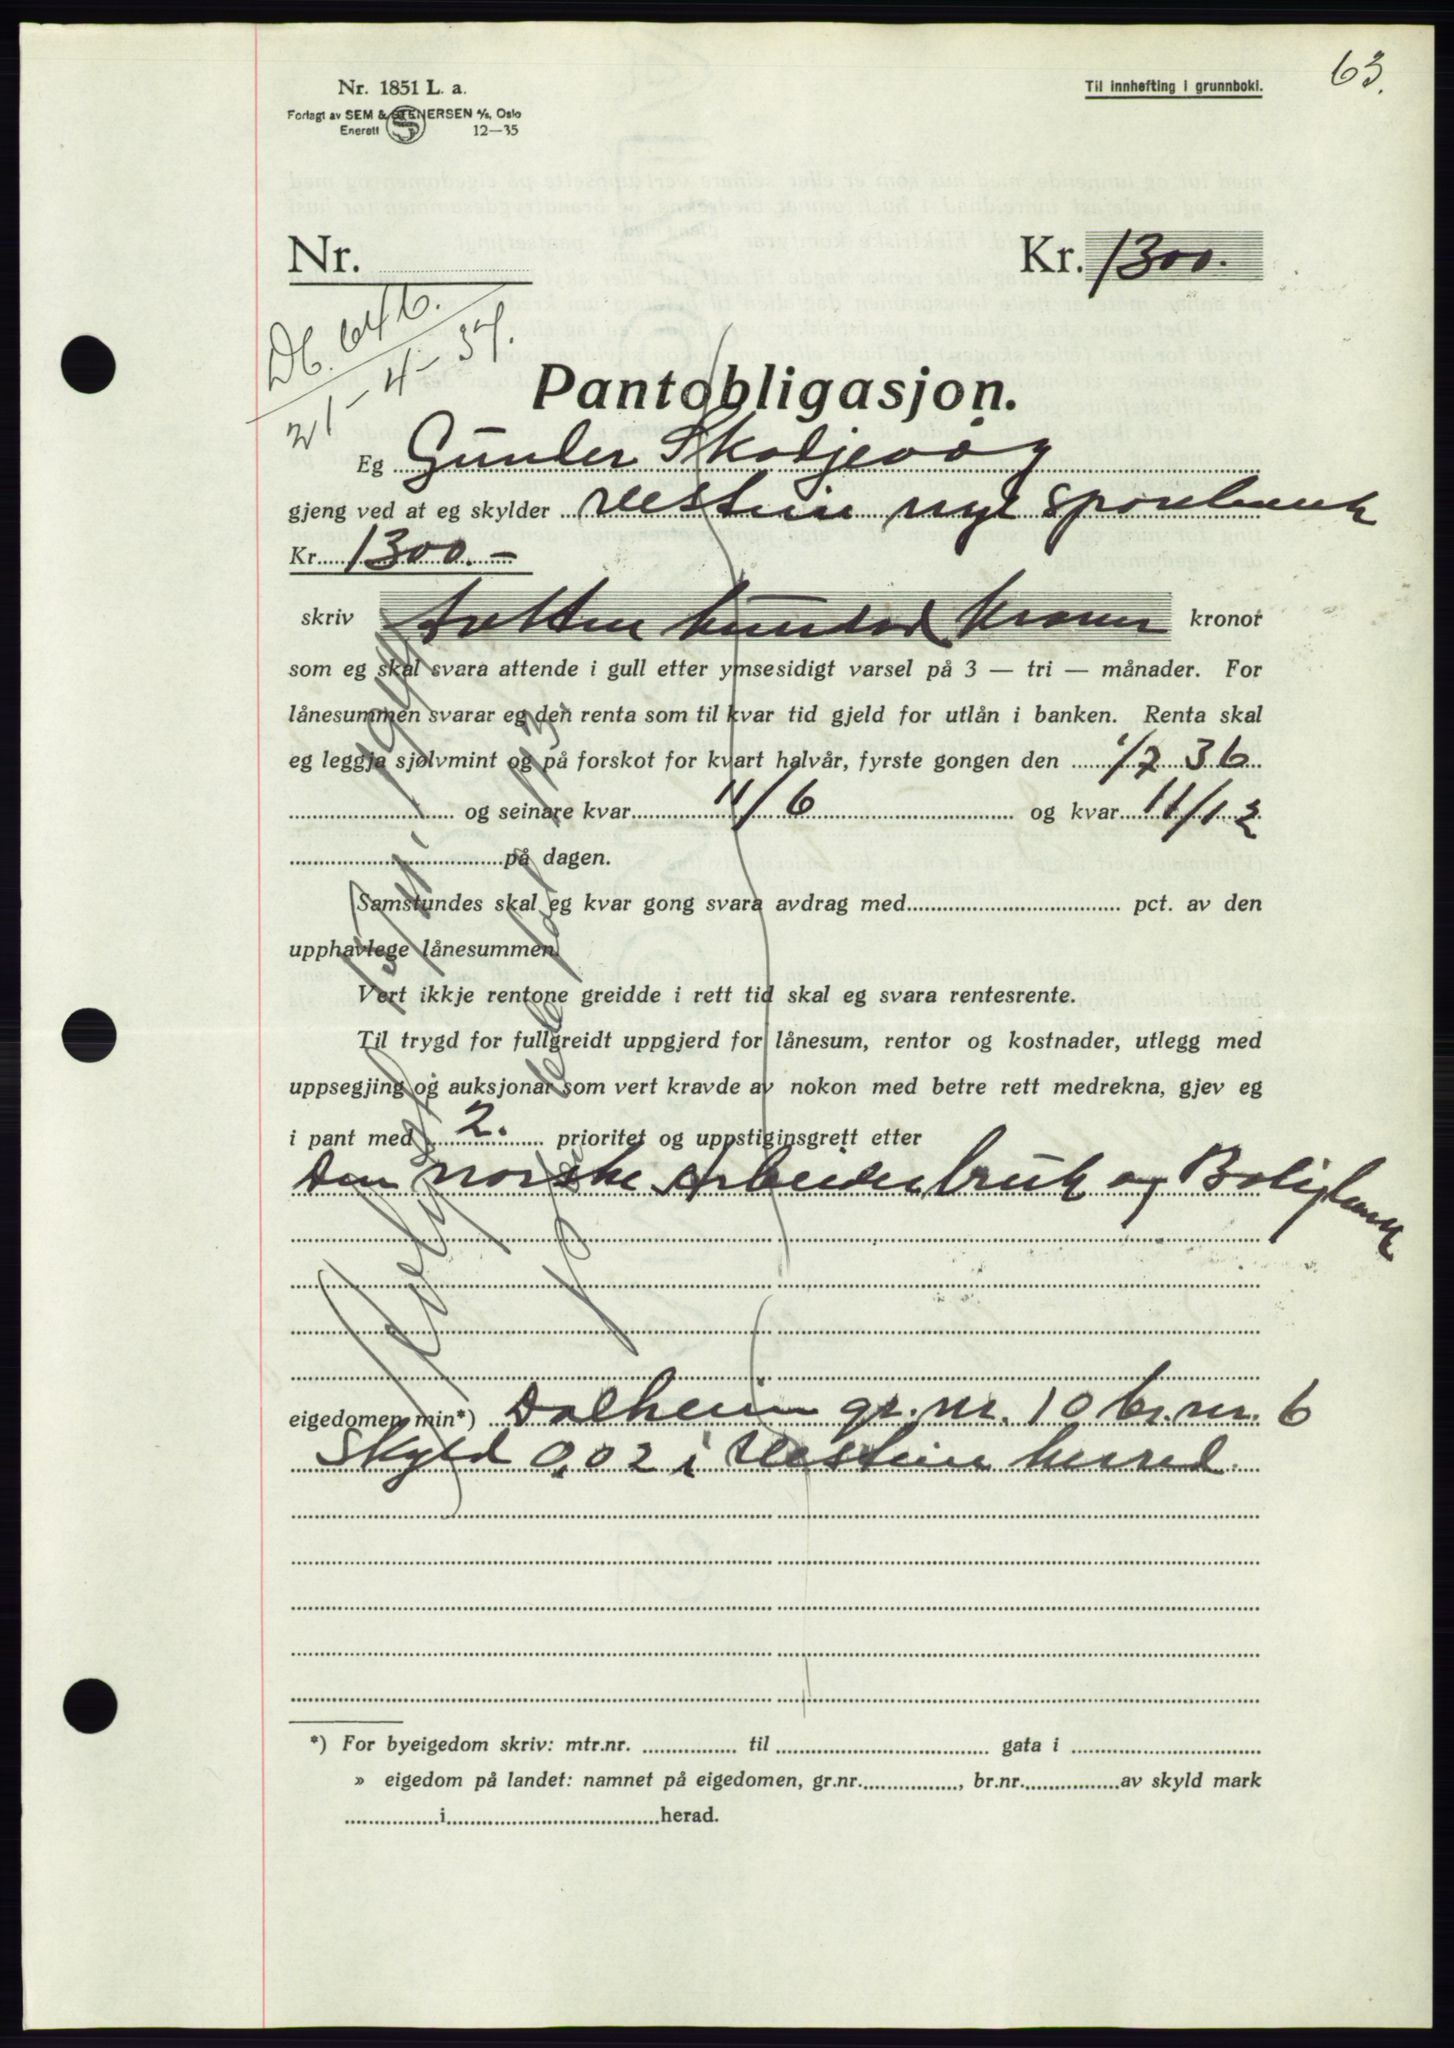 63.
Nr. 1851 L. a.
Til innhefting i grunnboki.
Forlagt av SEM & STENERSEN A/S, Oslo
Enerett 12—35
S
Nr.
Kr. 1300.
Db. 646.
21-4-37.
Pantobligasjon.
Eg Gunder Skodjevåg
gjeng ved at eg skylder Vestnes nye sparebank
Kr. 1300.-
skriv tretten hundrad kroner kronor
som eg skal svara attende i gull etter ymsesidigt varsel på 3 — tri — månader. For
lånesummen svarar eg den renta som til kvar tid gjeld for utlån i banken. Renta skal
eg leggja sjølvmint og på forskot for kvart halvår, fyrste gongen den 1/7 36
og seinare kvar 11/6 og kvar 11/12
på dagen.
Samstundes skal eg kvar gong svara avdrag med pct. av den
upphavlege lånesummen.
Vert ikkje rentone greidde i rett tid skal eg svara rentesrente.
Til trygd for fullgreidt uppgjerd for lånesum, rentor og kostnader, utlegg med
uppsegjing og auksjonar som vert kravde av nokon med betre rett medrekna, gjev eg
i pant med 2. prioritet og uppstiginsgrett etter
Den norske Arbeiderbruk og Boligbank
eigedomen min*) Dalheim gr.nr. 10 br.nr. 6
Skyld 0,02 i Vestnes herred.
*) For byeigedom skriv: mtr.nr. til gata i
» eigedom på landet: namnet på eigedomen, gr.nr. , br.nr. av skyld mark
i herad.